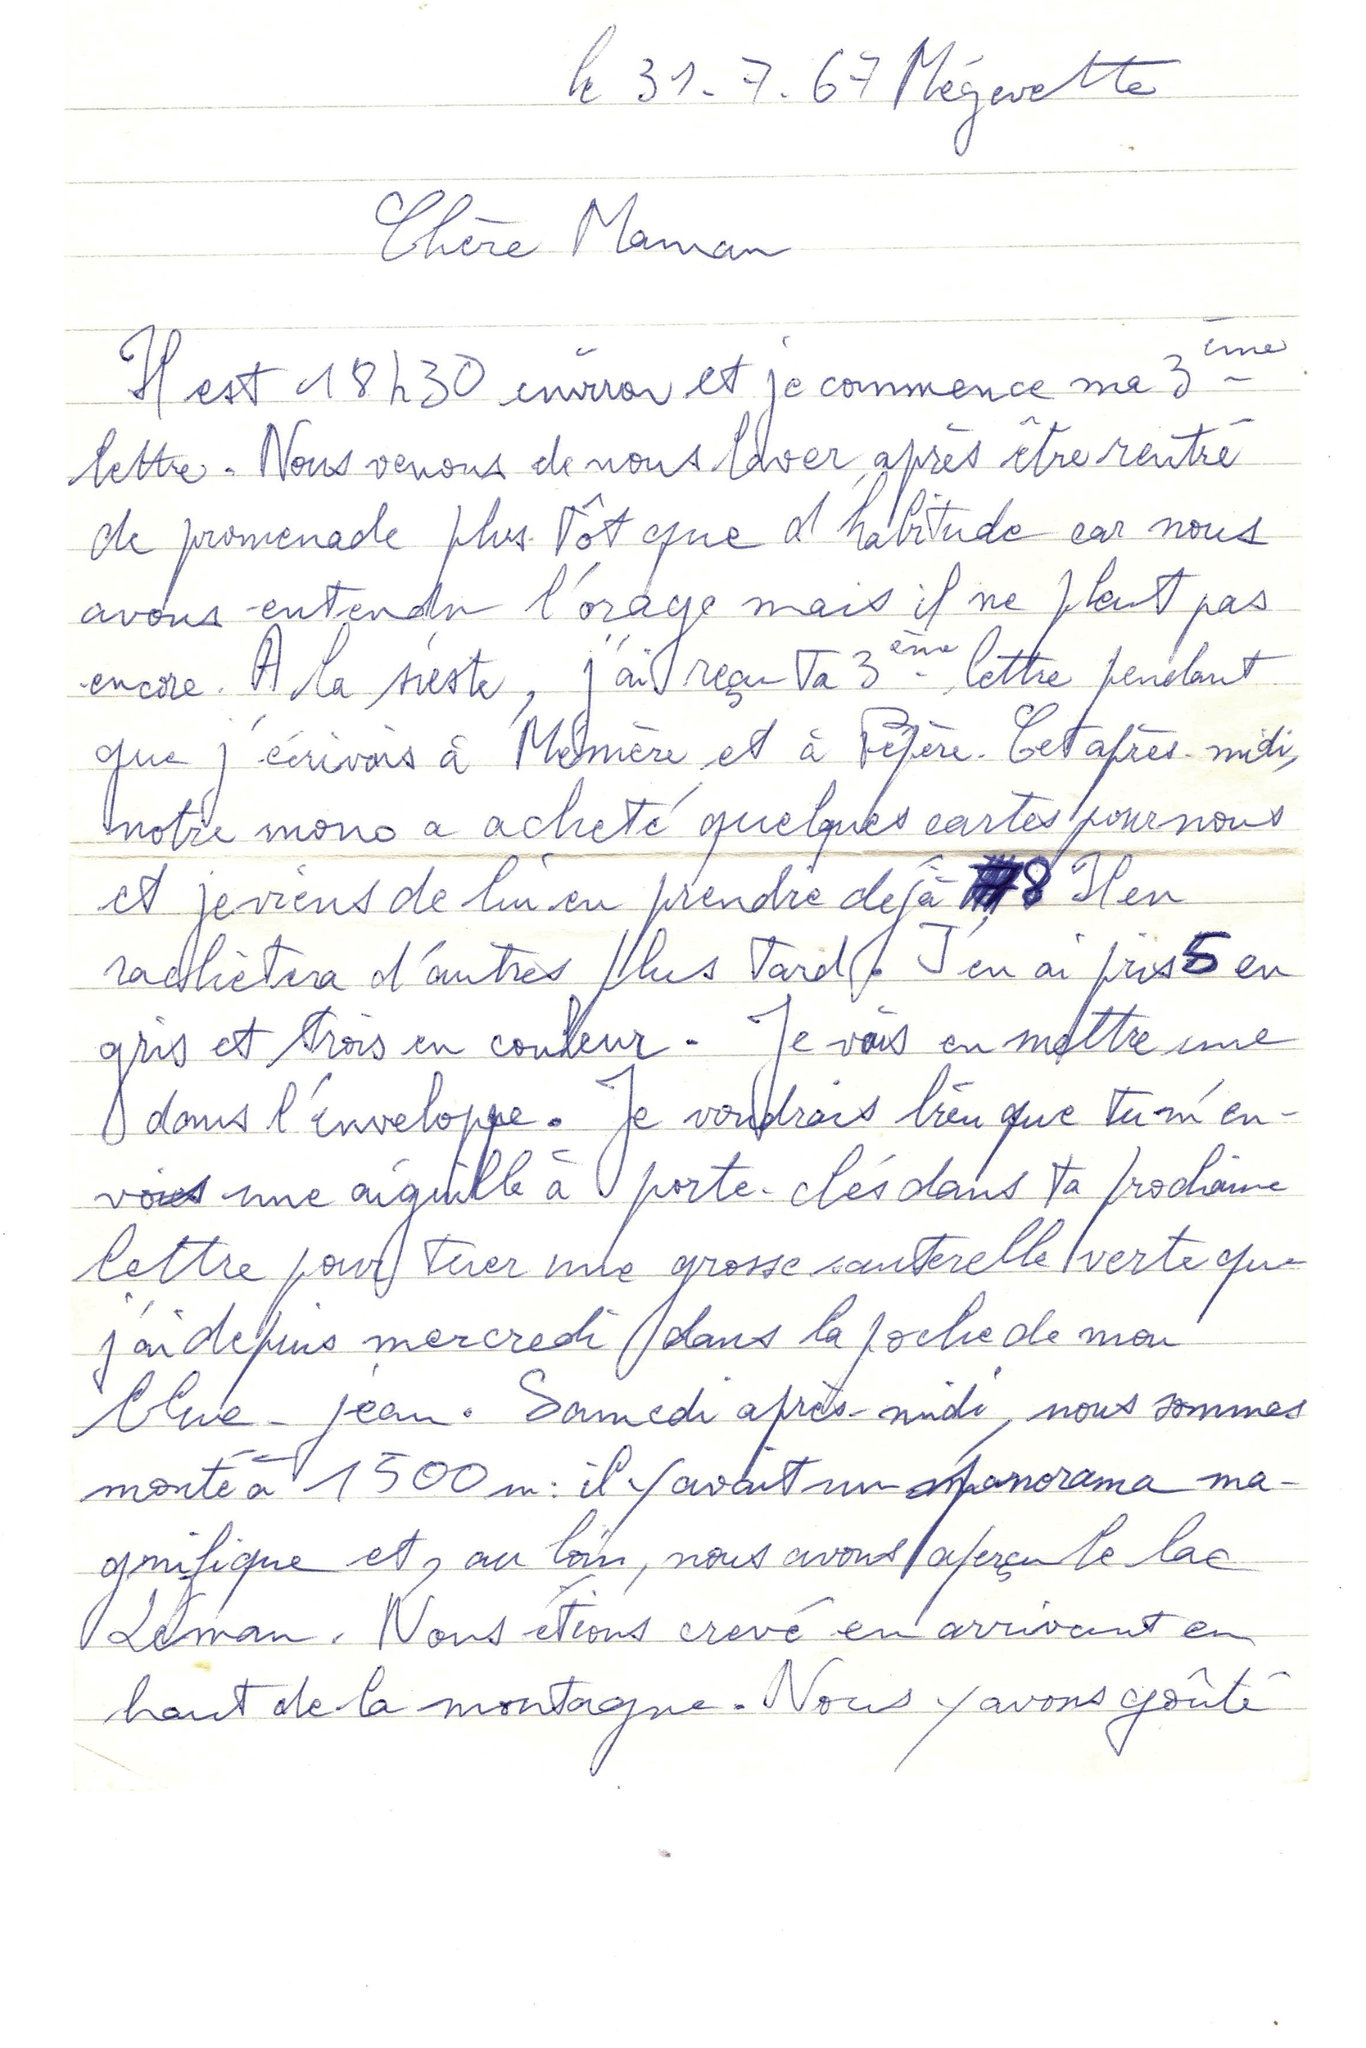 le 31-7-67 Mégevette
Chère Maman
Il est 18h30 environ et je commence ma 3ème
lettre. Nous venons de nous laver après être rentré
de promenade plus tôt que d'habitude car nous
avons entendu l'orage mais il ne pleut pas
encore. A la sieste, j'ai reçu ta 3ème lettre pendant
que j'écrivais à Mémère et à Pépère. Cet après-midi,
notre mono a acheté quelques cartes pour nous
et je viens de lui en prendre déjà 8 Il en
rachètera d'autres plus tard. J'en ai pris 5 en
gris et trois en couleur. Je vais en mettre une
dans l'enveloppe. Je voudrais bien que tu m'en-
voies une aiguille à porte-clés dans ta prochaine
lettre pour tuer une grosse sauterelle verte que
j'ai depuis mercredi dans la poche de mon
blue-jean. Samedi après-midi, nous sommes
monté à 1500m: il y avait un panorama ma-
gnifique et, au loin, nous avons aperçu le lac
Léman. Nous étions crevé en arrivant en
haut de la montagne. Nous y avons goûté